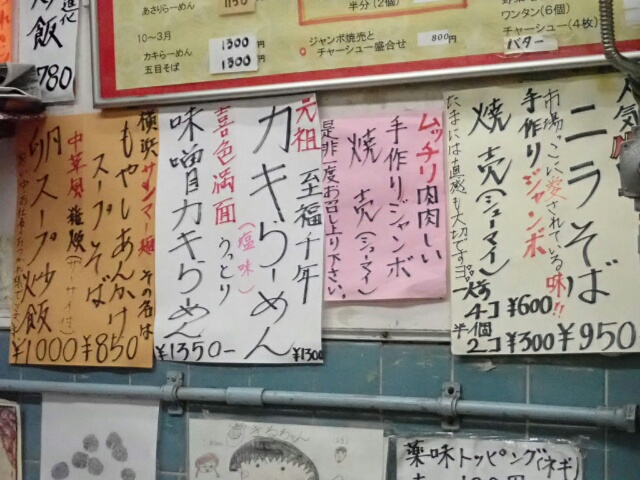 炒飯
780
あさりらーめん
1150
10～3月
カキらーめん
1300円
五目そば
1300円
半分(2個)
ジャンボ焼売と
チャーシュー盛合せ
800円
ワンタン(6個)
チャーシュー(4枚)
バター
人気
ニラそば
¥950
市場 こいに愛されている味!!
手作りジャンボ
焼売(シューマイ)
4コ ¥600
半個
2コ ¥300
たまには直感も大切ですヨ
ムッチリ肉肉しい
手作りジャンボ
焼売(シューマイ)
是非一度お召し上り下さい。
元祖 至福千年
カキらーめん
¥1300
(塩味)
喜色満面
うっとり
味噌カキらーめん
¥1350-
横浜サンマー麺 その名は
もやしあんかけ
スープそば
¥850
中華風雑炊(ザーサイ付)
卵スープ炒飯
¥1000
薬味トッピング(ネギ)